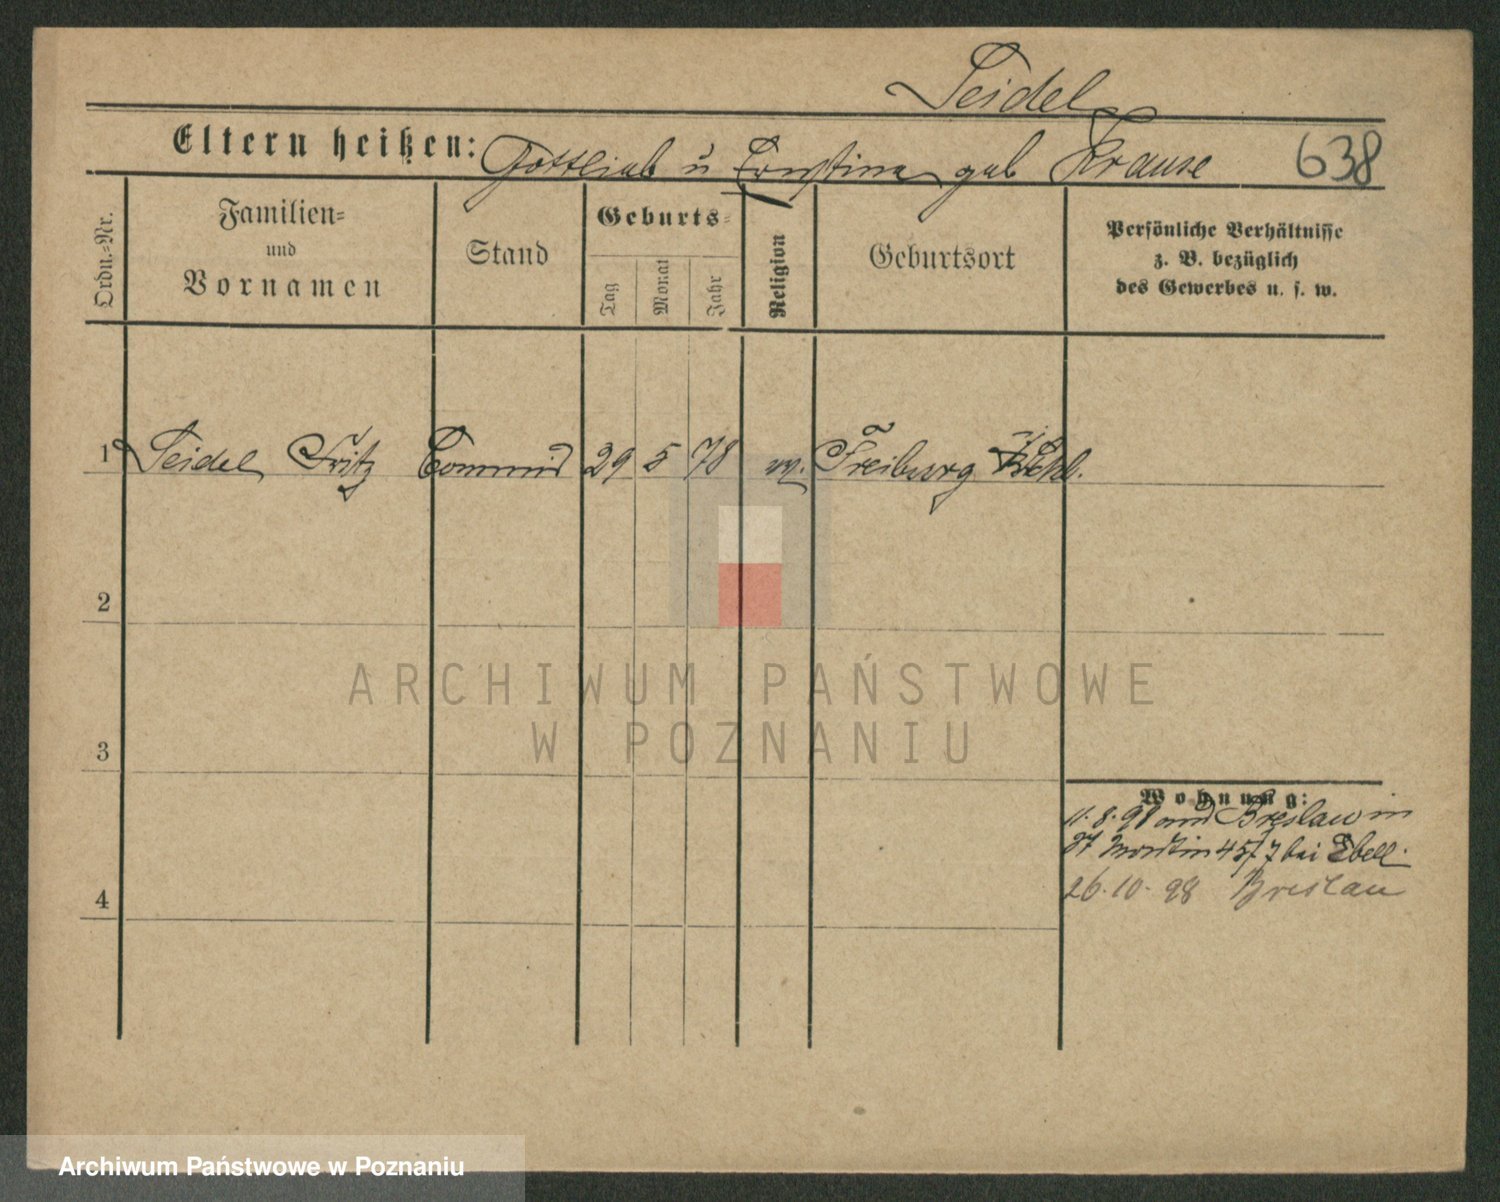 Seidel
Eltern heißen: Gottlieb u Ernstine geb Krause
638
Ordn.-Nr.
Familien-
und
Vornamen
Stand
Geburts-
Tag
Monat
Jahr
Religion
Geburtsort
Persönliche Verhältnisse
z. B. bezüglich
des Gewerbes u. s. w.
1 Seidel Fritz Commis 29 5 78 Freiburg Schl.
2
3
4
Wohnung:
11.8.98 aus Breslau in
St Martin 45/7 bei Ebell.
26.10.98 Breslau
ARCHIWUM PAŃSTWOWE
W POZNANIU
Archiwum Państwowe w Poznaniu